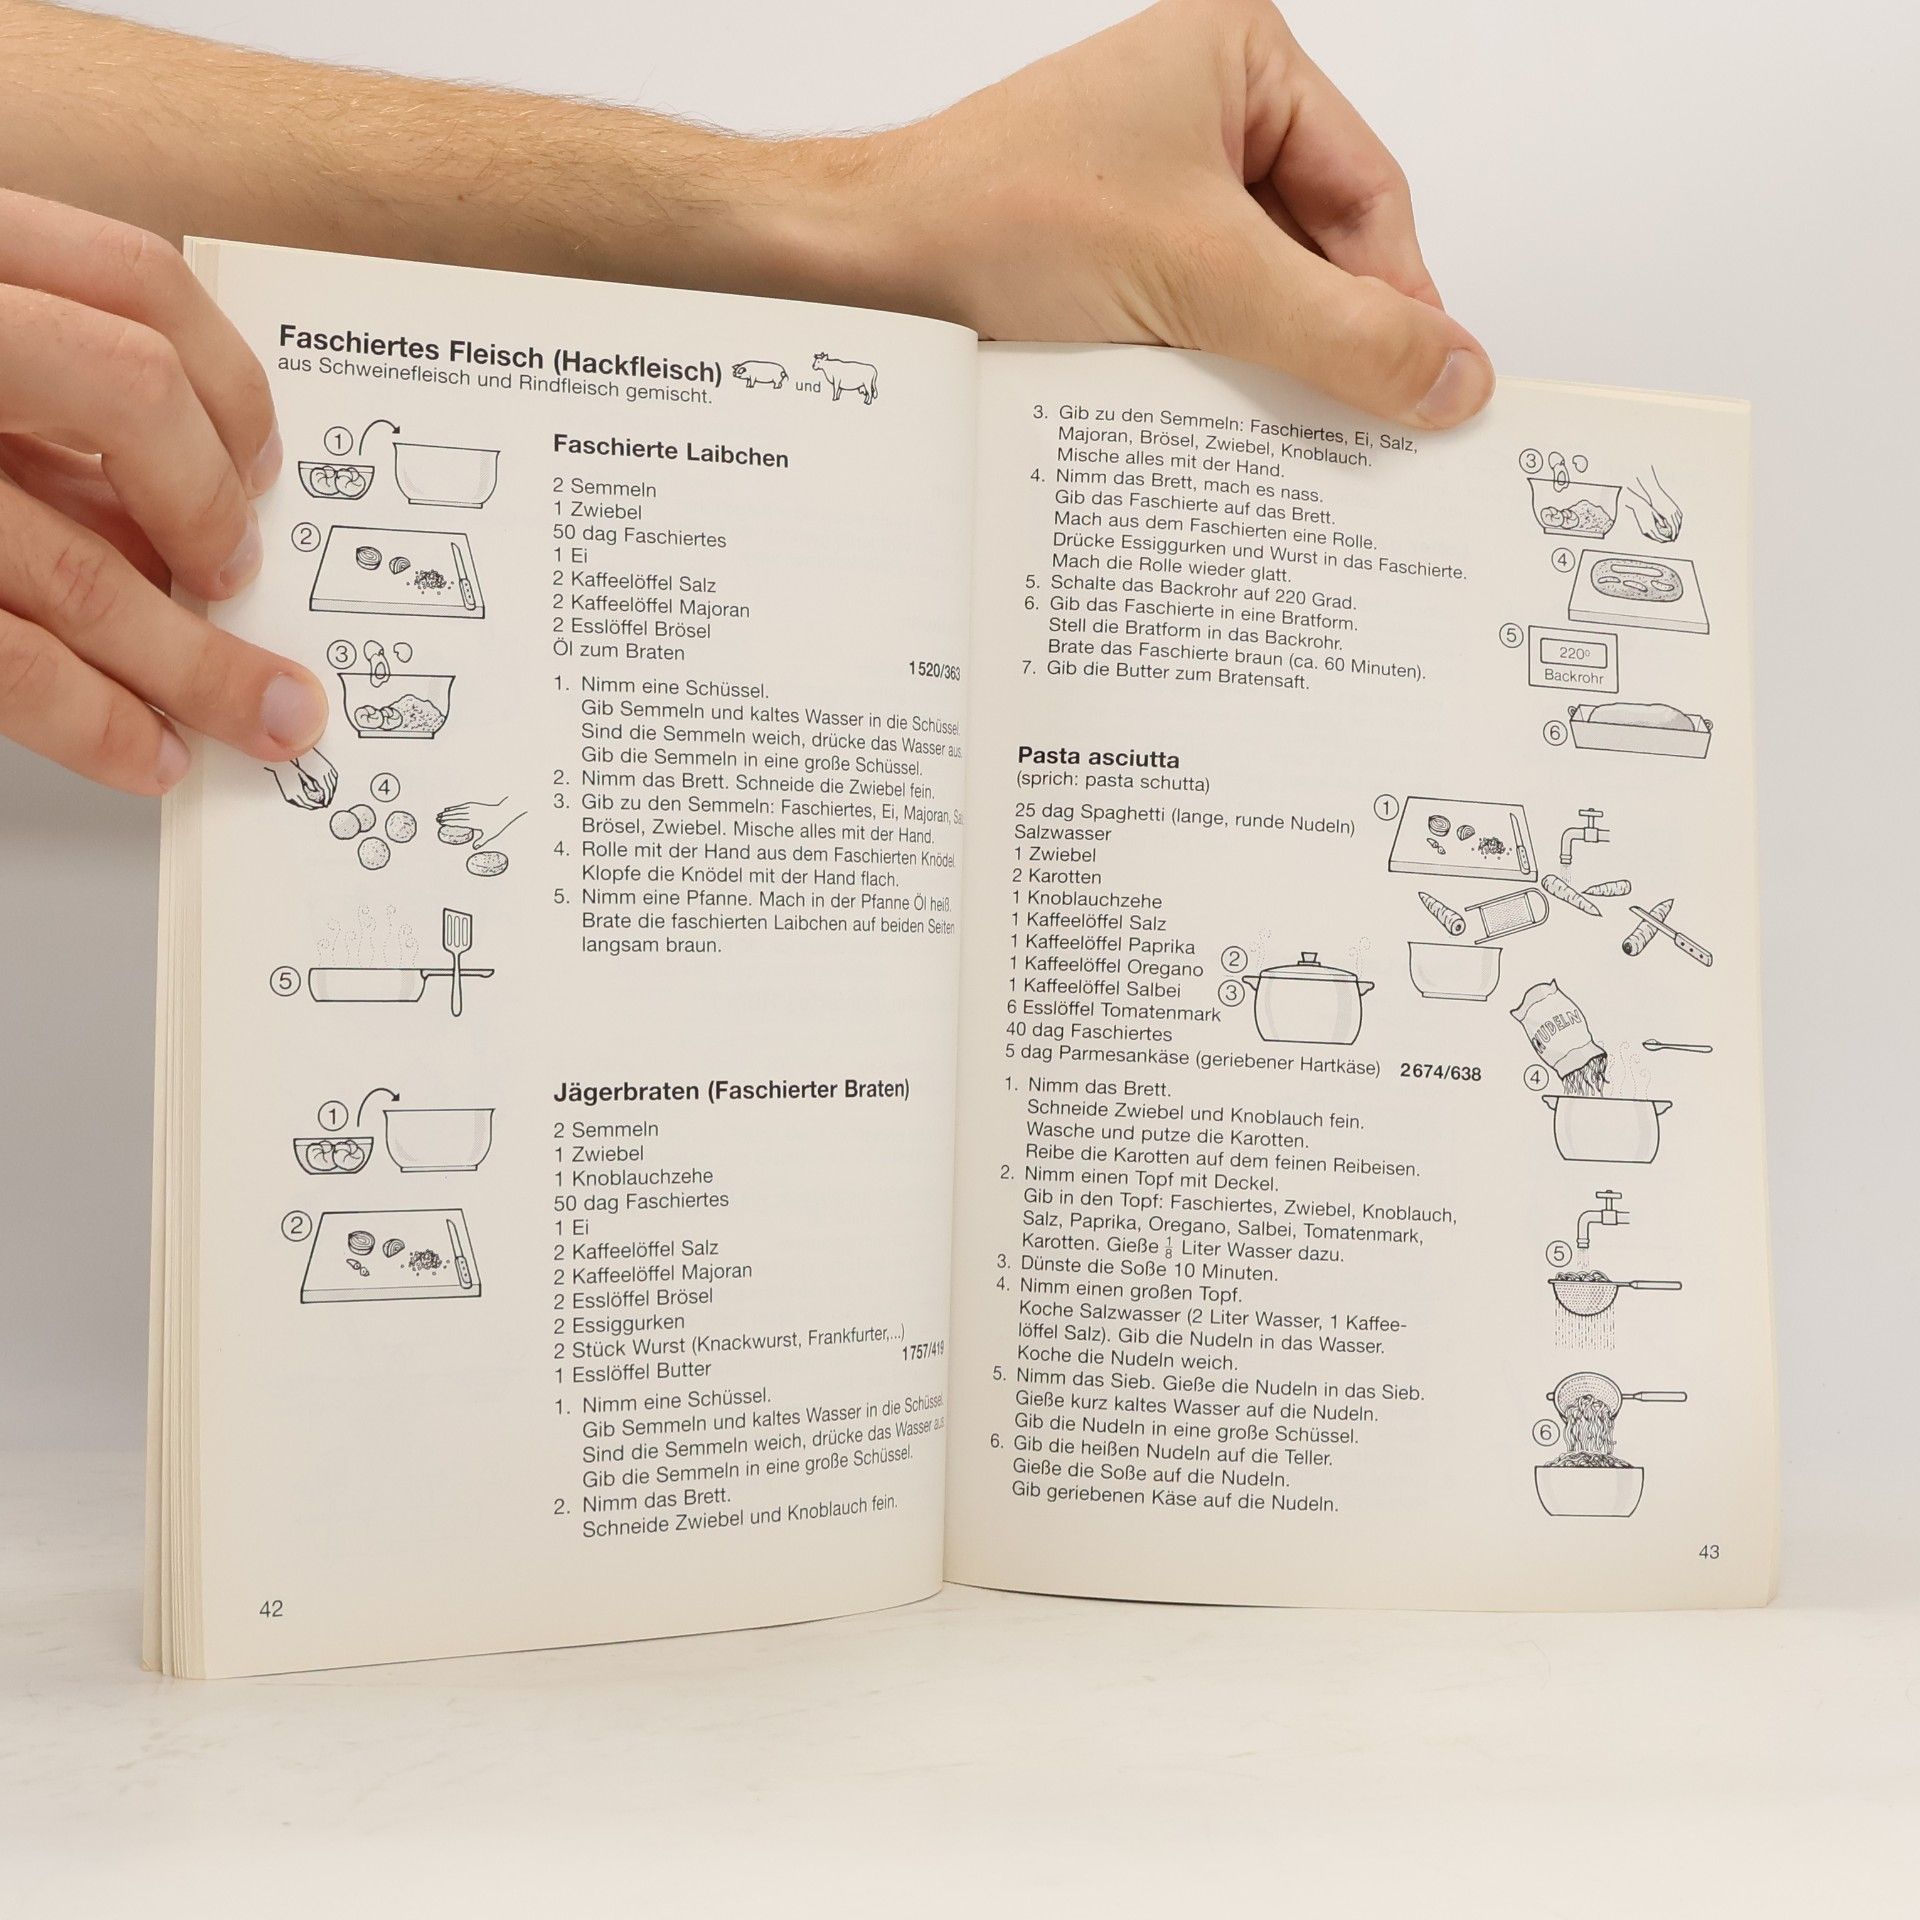 Faschiertes Fleisch (Hackfleisch)
und
aus Schweinefleisch und Rindfleisch gemischt.
Faschierte Laibchen
2 Semmeln
1 Zwiebel
50 dag Faschiertes
1 Ei
2 Kaffeelöffel Salz
2 Kaffeelöffel Majoran
2 Esslöffel Brösel
Öl zum Braten
1520/363
1. Nimm eine Schüssel.
Gib Semmeln und kaltes Wasser in die Schüssel.
Sind die Semmeln weich, drücke das Wasser aus.
Gib die Semmeln in eine große Schüssel.
2. Nimm das Brett. Schneide die Zwiebel fein.
3. Gib zu den Semmeln: Faschiertes, Ei, Majoran,
Brösel, Zwiebel. Mische alles mit der Hand.
4. Rolle mit der Hand aus dem Faschierten Knödel.
Klopfe die Knödel mit der Hand flach.
5. Nimm eine Pfanne. Mach in der Pfanne Öl heiß.
Brate die faschierten Laibchen auf beiden Seiten
langsam braun.
1
2
3
4
5
Jägerbraten (Faschierter Braten)
2 Semmeln
1 Zwiebel
1 Knoblauchzehe
50 dag Faschiertes
1 Ei
2 Kaffeelöffel Salz
2 Kaffeelöffel Majoran
2 Esslöffel Brösel
2 Essiggurken
2 Stück Wurst (Knackwurst, Frankfurter,...)
1 Esslöffel Butter
1757/419
1. Nimm eine Schüssel.
Gib Semmeln und kaltes Wasser in die Schüssel.
Sind die Semmeln weich, drücke das Wasser aus.
Gib die Semmeln in eine große Schüssel.
2. Nimm das Brett.
Schneide Zwiebel und Knoblauch fein.
1
2
42
3. Gib zu den Semmeln: Faschiertes, Ei, Salz,
Majoran, Brösel, Zwiebel, Knoblauch.
Mische alles mit der Hand.
4. Nimm das Brett, mach es nass.
Gib das Faschierte auf das Brett.
Mach aus dem Faschierten eine Rolle.
Drücke Essiggurken und Wurst in das Faschierte.
Mach die Rolle wieder glatt.
5. Schalte das Backrohr auf 220 Grad.
6. Gib das Faschierte in eine Bratform.
Stell die Bratform in das Backrohr.
Brate das Faschierte braun (ca. 60 Minuten).
7. Gib die Butter zum Bratensaft.
3
4
5
220°
Backrohr
6
Pasta asciutta
(sprich: pasta schutta)
25 dag Spaghetti (lange, runde Nudeln)
Salzwasser
1 Zwiebel
2 Karotten
1 Knoblauchzehe
1 Kaffeelöffel Salz
1 Kaffeelöffel Paprika
1 Kaffeelöffel Oregano
1 Kaffeelöffel Salbei
6 Esslöffel Tomatenmark
40 dag Faschiertes
5 dag Parmesankäse (geriebener Hartkäse)
2674/638
1. Nimm das Brett.
Schneide Zwiebel und Knoblauch fein.
Wasche und putze die Karotten.
Reibe die Karotten auf dem feinen Reibeisen.
2. Nimm einen Topf mit Deckel.
Gib in den Topf: Faschiertes, Zwiebel, Knoblauch,
Salz, Paprika, Oregano, Salbei, Tomatenmark,
Karotten. Gieße 1/8 Liter Wasser dazu.
3. Dünste die Soße 10 Minuten.
4. Nimm einen großen Topf.
Koche Salzwasser (2 Liter Wasser, 1 Kaffee-
löffel Salz). Gib die Nudeln in das Wasser.
Koche die Nudeln weich.
5. Nimm das Sieb. Gieße die Nudeln in das Sieb.
Gieße kurz kaltes Wasser auf die Nudeln.
Gib die Nudeln in eine große Schüssel.
6. Gib die heißen Nudeln auf die Teller.
Gieße die Soße auf die Nudeln.
Gib geriebenen Käse auf die Nudeln.
1
2
3
NUDELN
4
5
6
43